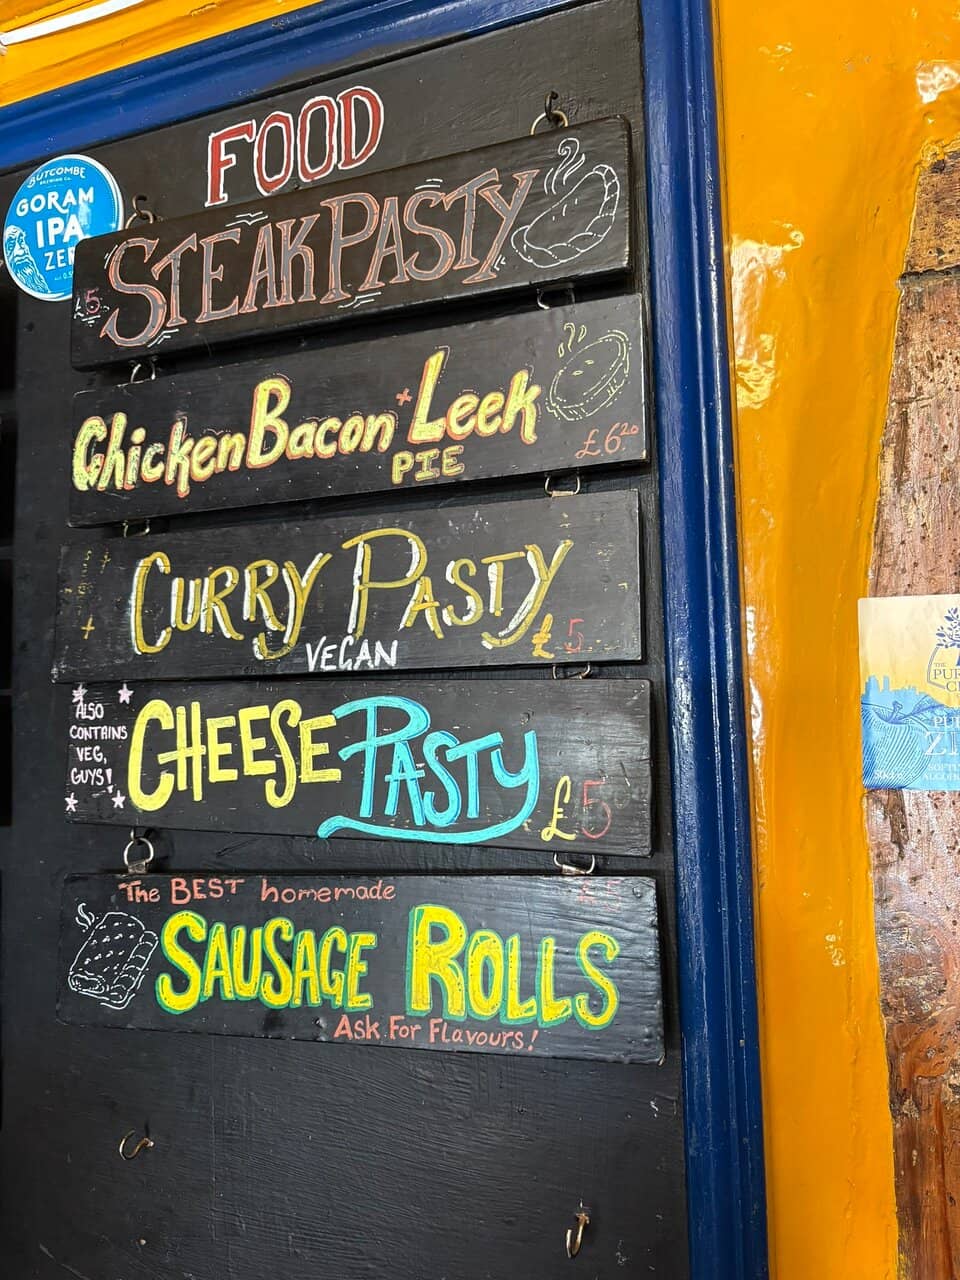 FOOD
BUTCOMBE
BREWING CO.
GORAM
IPA
STEAK PASTY
£5
Chicken Bacon + Leek
PIE
£6.20
CURRY PASTY
VEGAN
£5
ALSO
CONTAINS
VEG,
GUYS!
CHEESE PASTY
£5
The BEST homemade
SAUSAGE ROLLS
Ask For Flavours!
THE